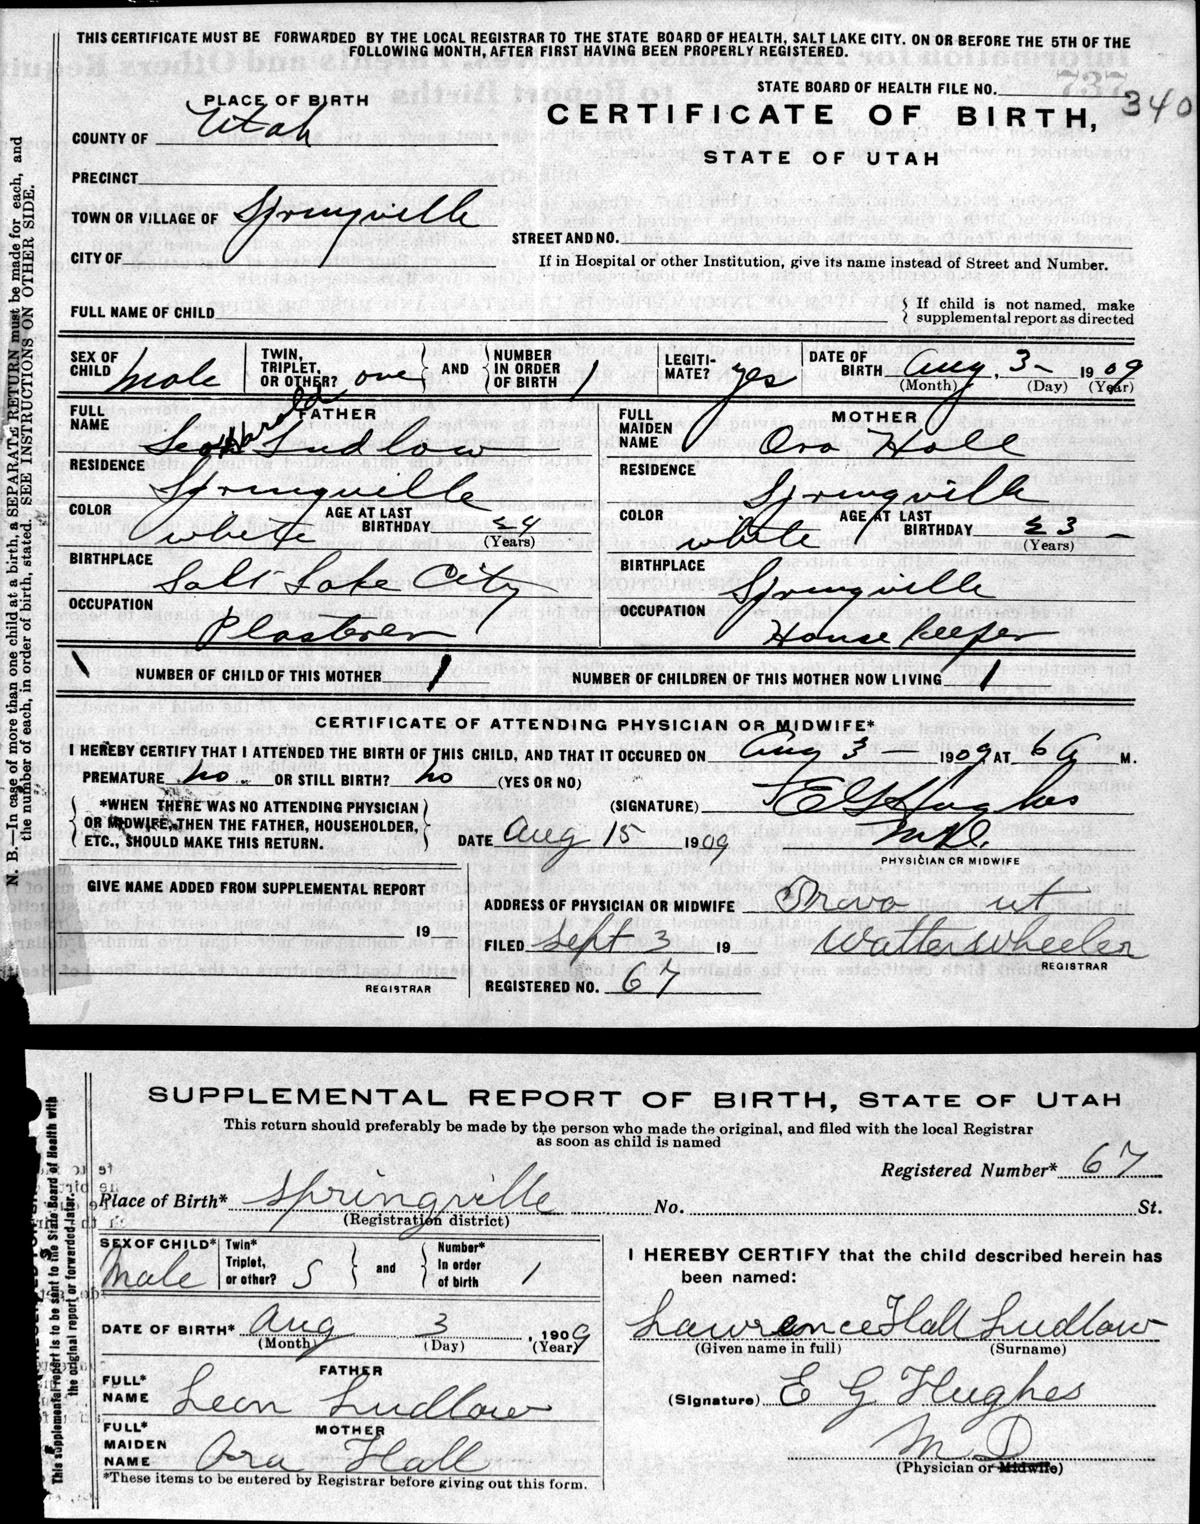 THIS CERTIFICATE MUST BE FORWARDED BY THE LOCAL REGISTRAR TO THE STATE BOARD OF HEALTH, SALT LAKE CITY. ON OR BEFORE THE 5TH OF THE
FOLLOWING MONTH, AFTER FIRST HAVING BEEN PROPERLY REGISTERED.
STATE BOARD OF HEALTH FILE NO. 340
PLACE OF BIRTH
CERTIFICATE OF BIRTH,
STATE OF UTAH
COUNTY OF Utah
PRECINCT
TOWN OR VILLAGE OF Springville
STREET AND NO.
CITY OF
If in Hospital or other Institution, give its name instead of Street and Number.
FULL NAME OF CHILD
If child is not named, make
supplemental report as directed
SEX OF CHILD Male
TWIN, TRIPLET, OR OTHER? one
AND
NUMBER IN ORDER OF BIRTH 1
LEGITI-MATE? yes
DATE OF BIRTH Aug. 3- 1909
(Month) (Day) (Year)
FATHER
FULL NAME Harold Ludlow
RESIDENCE Springville
COLOR white
AGE AT LAST BIRTHDAY 24
(Years)
BIRTHPLACE Salt Lake City
OCCUPATION Plasterer
MOTHER
FULL MAIDEN NAME Ora Hall
RESIDENCE Springville
COLOR white
AGE AT LAST BIRTHDAY 23
(Years)
BIRTHPLACE Springville
OCCUPATION House keeper
NUMBER OF CHILD OF THIS MOTHER 1
NUMBER OF CHILDREN OF THIS MOTHER NOW LIVING 1
CERTIFICATE OF ATTENDING PHYSICIAN OR MIDWIFE*
I HEREBY CERTIFY THAT I ATTENDED THE BIRTH OF THIS CHILD, AND THAT IT OCCURED ON Aug 3 - 1909 AT 6 A M.
PREMATURE no OR STILL BIRTH? no (YES OR NO)
*WHEN THERE WAS NO ATTENDING PHYSICIAN
OR MIDWIFE, THEN THE FATHER, HOUSEHOLDER,
ETC., SHOULD MAKE THIS RETURN.
(SIGNATURE) E G Hughes
M.D.
DATE Aug 15 1909
PHYSICIAN OR MIDWIFE
GIVE NAME ADDED FROM SUPPLEMENTAL REPORT
19
REGISTRAR
ADDRESS OF PHYSICIAN OR MIDWIFE Provo ut
FILED Sept 3 19
Watter Wheeler
REGISTRAR
REGISTERED NO. 67
N. B.—In case of more than one child at a birth, a SEPARATE RETURN must be made for each, and
the number of each, in order of birth, stated. SEE INSTRUCTIONS ON OTHER SIDE.
SUPPLEMENTAL REPORT OF BIRTH, STATE OF UTAH
This return should preferably be made by the person who made the original, and filed with the local Registrar
as soon as child is named
Registered Number* 67
Place of Birth* Springville No. St.
(Registration district)
SEX OF CHILD* Male
Twin* Triplet, or other? S
and
Number* In order of birth 1
DATE OF BIRTH* Aug 3, 1909
(Month) (Day) (Year)
FATHER
FULL* NAME Leon Ludlow
MOTHER
FULL* MAIDEN NAME Ora Hall
*These items to be entered by Registrar before giving out this form.
I HEREBY CERTIFY that the child described herein has
been named:
Lawrence Hall Ludlow
(Given name in full) (Surname)
(Signature) E G Hughes
M D
(Physician or Midwife)
This supplemental report is to be sent to the State Board of Health with
the original report or forwarded later.